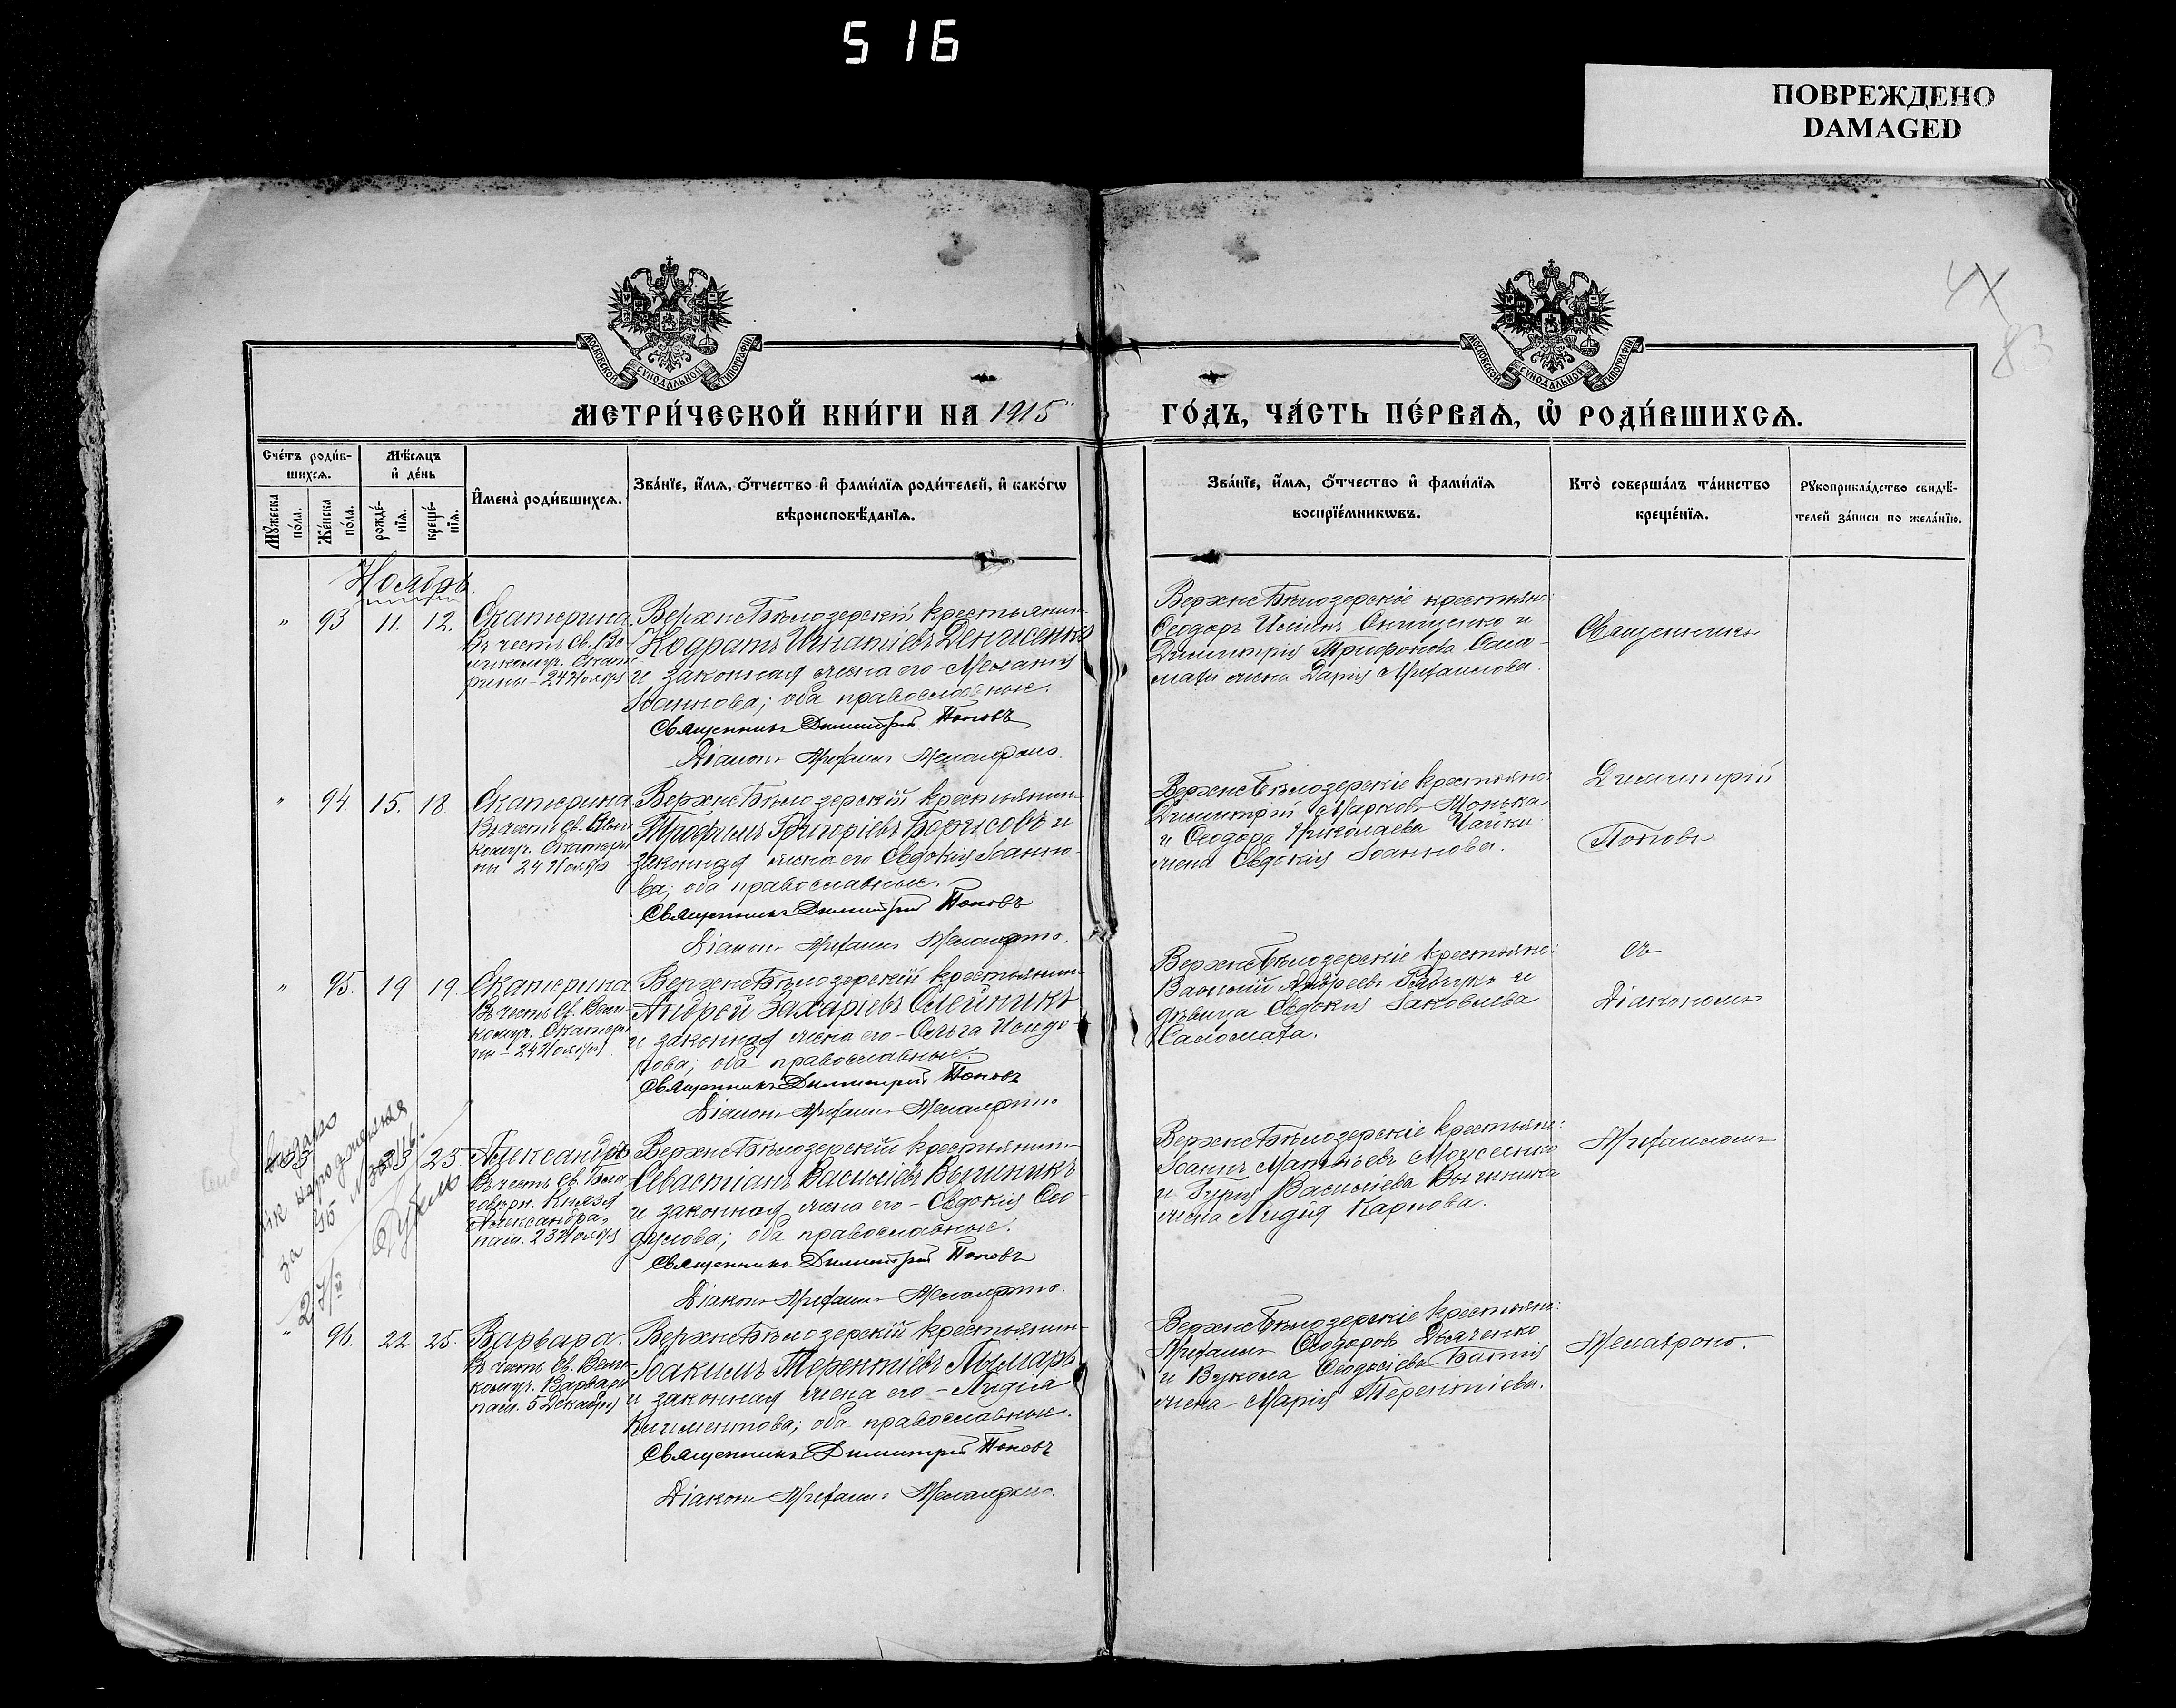 516
ПОВРЕЖДЕНО
DAMAGED
МОСКОВСКОЙ СѴНОДАЛЬНОЙ ТИПОГРАФІИ
МОСКОВСКОЙ СѴНОДАЛЬНОЙ ТИПОГРАФІИ
МЕТРИ́ЧЕСКОЙ КНИ́ГИ НА 1915
ГО́ДЪ, ЧА́СТЬ ПЕ́РВАѦ, Ѡ҆ РОДИ́ВШИХСѦ.
Сче́тъ роди́в-
шихсѧ.
Мѣ́сѧцъ
и҆ де́нь
Мꙋ́жеска
по́ла.
Же́нска
по́ла.
рожде́-
нїѧ.
креще́-
нїѧ.
И҆мена̀ роди́вшихсѧ.
Зва́нїе, и҆́мѧ, ѻ҆́тчество и҆ фами́лїѧ роди́телей, и҆ како́гѡ
вѣроисповѣ́данїѧ.
Зва́нїе, и҆́мѧ, ѻ҆́тчество и҆ фами́лїѧ
воспрїе́мникѡвъ.
Кто̀ соверша́лъ та́инство
креще́нїѧ.
Рꙋкоприкла́дство свидѣ́-
телей за́писи по жела́нїю.
Ноябрь
" 93 11. 12. Екатерина.
Въ честь Св. Ве-
ликомуч. Екате-
рины - 24 Ноября
Верхне Бѣлозерскій крестьянинъ
Кодратъ Игнатіевъ Денисенко
и законная жена его - Меланія
Іоаннова; оба православные.
Священникъ Димитрій Поповъ
Діаконъ Михаилъ
Верхне Бѣлозерскіе крестьяне:
Ѳеодоръ Онищенко и
Димитрія Трифонова Сало-
маѳи жена Дарія Михаилова.
Священникъ
" 94 15. 18. Екатерина
Въ честь Св. Вели-
комуч. Екатери-
ны 24 Ноября
Верхне Бѣлозерскій крестьянинъ
Трофимъ Григоріевъ Борисовъ и
законная жена его Евдокія Іоанно-
ва; оба православные.
Священникъ Димитрій Поповъ
Діаконъ Михаилъ
Верхне Бѣлозерскіе крестьяне:
Димитрій Марковъ Монька
и Ѳеодора Николаева Чайки
жена Евдокія Іоаннова.
Димитрій
Поповъ
" 95. 19 19. Екатерина
Въ честь Св. Вели-
комуч. Екатери-
ны - 24 Ноября
Верхне Бѣлозерскій крестьянинъ
Андрей Захаріевъ Олейникъ
и законная жена его - Ольга Исидо-
рова; оба православные.
Священникъ Димитрій Поповъ
Діаконъ Михаилъ
Верхне Бѣлозерскіе крестьяне:
Василій Андреевъ Рябчукъ и
дѣвица Евдокія Іаковлева
Саломаѳа.
съ
Діакономъ
23 25. Александръ
Въ честь Св. Бла-
говѣрн. Князя
Александра,
пам. 23 Ноября
Верхне Бѣлозерскій крестьянинъ
Севастіанъ Василіевъ Выхникъ
и законная жена его - Евдокія Ѳео-
дулова; оба православные.
Священникъ Димитрій Поповъ
Діаконъ Михаилъ
Верхне Бѣлозерскіе крестьяне:
Іоаннъ Матѳіевъ Моисеенко
и Гурія Василіева
жена Лидія Карпова.
Михаиломъ
" 96. 22 25. Варвара.
Въ честь Св. Вели-
комуч. Варвары
пам. 5 Декабря
Верхне Бѣлозерскій крестьянинъ
Іоакимъ Терентіевъ Лымарь
и законная жена его - Лидія
Климентова; оба православные.
Священникъ Димитрій Поповъ
Діаконъ Михаилъ
Верхне Бѣлозерскіе крестьяне:
Михаилъ Ѳеодоровъ Дьяченко
и Вукола Ѳеодосіева
жена Марія Терентіева.